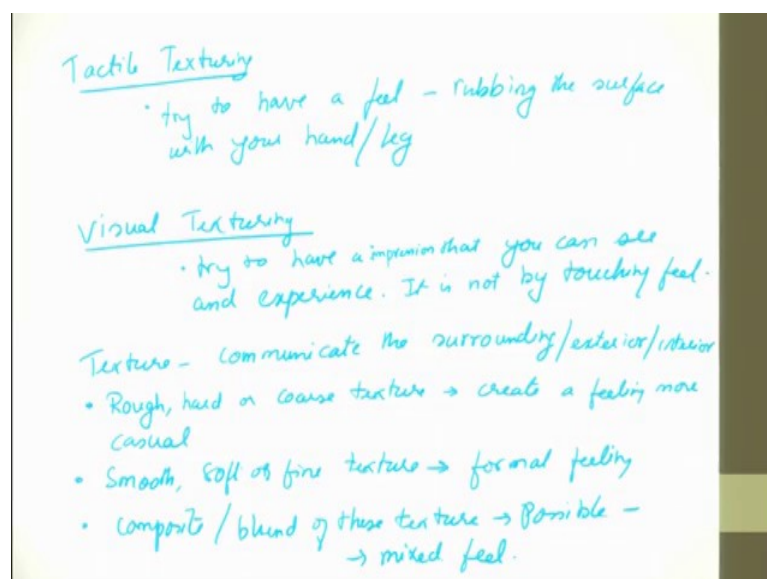 Tactile Texturing
• try to have a feel - rubbing the surface
with your hand/leg
Visual Texturing
• try to have a impression that you can see
and experience. It is not by touching feel.
Texture - communicate the surrounding/exterior/interior
• Rough, hard or coarse texture → create a feeling more
casual
• Smooth, soft or fine texture → formal feeling
• composite/blend of these texture → Possible -
→ mixed feel.